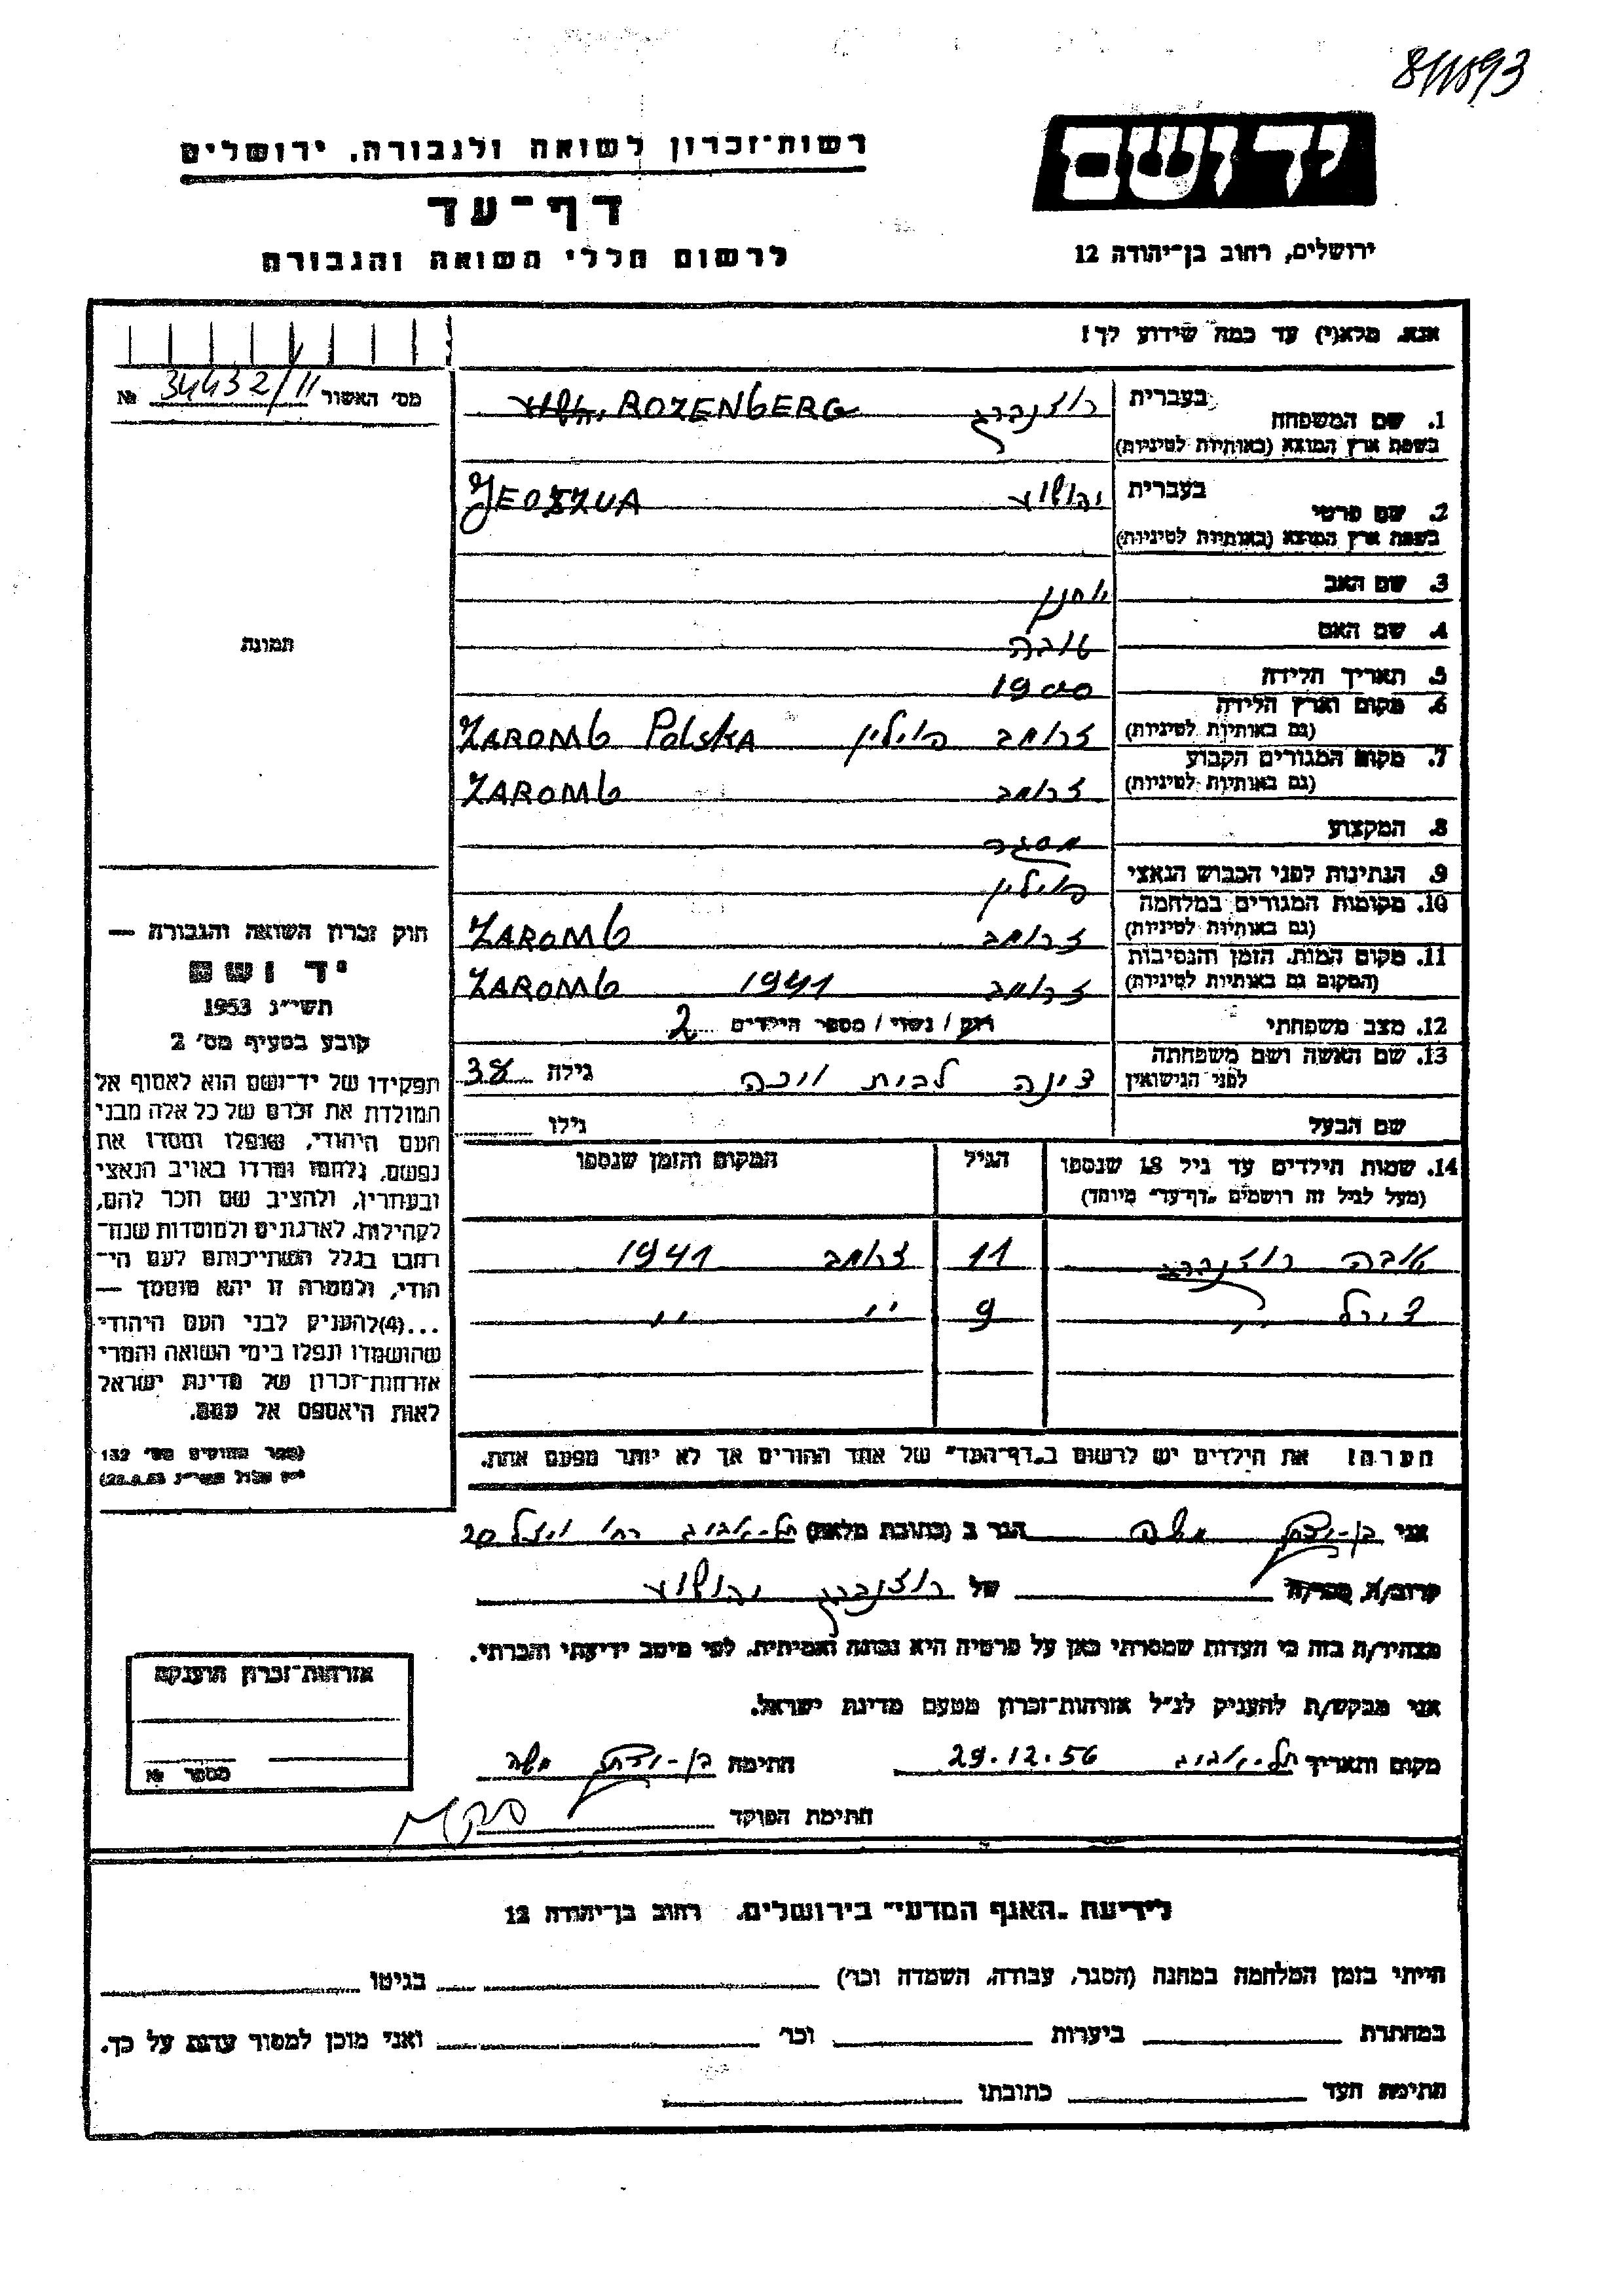 811893
רשות־זכרון לשואה ולגבורה, ירושלים
יד ושם
דף־עד
לרשום חללי השואה והגבורה
ירושלים, רחוב בן־יהודה 12
אנא, מלא(י) עד כמה שידוע לך!
מס' האשור 34432/11 №
1. שם המשפחה בעברית רוזנברג ROZENBERG
בשפת ארץ המוצא (באותיות לטיניות)
2. שם פרטי בעברית יהושוע JEOSZUA
בשפת ארץ המוצא (באותיות לטיניות)
3. שם האב
4. שם האם
5. תאריך הלידה 1900
6. מקום וארץ הלידה (גם באותיות לטיניות) זרומב פוילין ZAROMB Polska
7. מקום המגורים הקבוע (גם באותיות לטיניות) זרומב ZAROMB
8. המקצוע מסגר
9. הנתינות לפני הכבוש הנאצי פוילין
10. מקומות המגורים במלחמה (גם באותיות לטיניות) זרומב ZAROMB
11. מקום המות, הזמן והנסיבות (המקום גם באותיות לטיניות) זרומב 1941 ZAROMB
12. מצב משפחתי רווק / נשוי / מספר הילדים 2
13. שם האשה ושם משפחתה לפני הנישואין לבית גילה 38
שם הבעל גילו
תמונה
חוק זכרון השואה והגבורה —
יד ושם
תשי"ג 1953
קובע בסעיף מס' 2
תפקידו של יד־ושם הוא לאסוף אל
המולדת את זכרם של כל אלה מבני
העם היהודי, שנפלו ומסרו את
נפשם, נלחמו ומרדו באויב הנאצי
ובעוזריו, ולהציב שם וזכר להם,
לקהילות, לארגונים ולמוסדות שנח־
רבו בגלל השתייכותם לעם הי־
הודי, ולמטרה זו יהא מוסמך —
...(4) להעניק לבני העם היהודי
שהושמדו ונפלו בימי השואה והמרי
אזרחות־זכרון של מדינת ישראל
לאות היאספם אל עמם.
(ספר החוקים מס' 132
י"ז אלול תשי"ג 28.8.53)
14. שמות הילדים עד גיל 18 שנספו הגיל המקום והזמן שנספו
(מעל לגיל זה רושמים „דף־עד" מיוחד)
רוזנברג 11 זרומב 1941
" 9 " "
הערה! את הילדים יש לרשום ב„דף־העד" של אחד ההורים אך לא יותר מפעם אחת.
אני משה הגר ב (כתובת מלאה) תל-אביב רח' 20
קרוב/ה, מכר/ה של רוזנברג יהושוע
מצהיר/ה בזה כי העדות שמסרתי כאן על פרטיה היא נכונה ואמיתית, לפי מיטב ידיעתי והכרתי.
אני מבקש/ת להעניק לנ"ל אזרחות־זכרון מטעם מדינת ישראל.
מקום ותאריך תל-אביב 29.12.56 חתימה משה
חתימת הפוקד
אזרחות־זכרון הוענקה
מספר №
לידיעת „האגף המדעי" בירושלים, רחוב בן־יהודה 12
הייתי בזמן המלחמה במחנה (הסגר, עבודה, השמדה וכו') בגיטו
במחתרת ביערות וכו' ואני מוכן למסור עדות על כך.
חתימת העד כתובתו